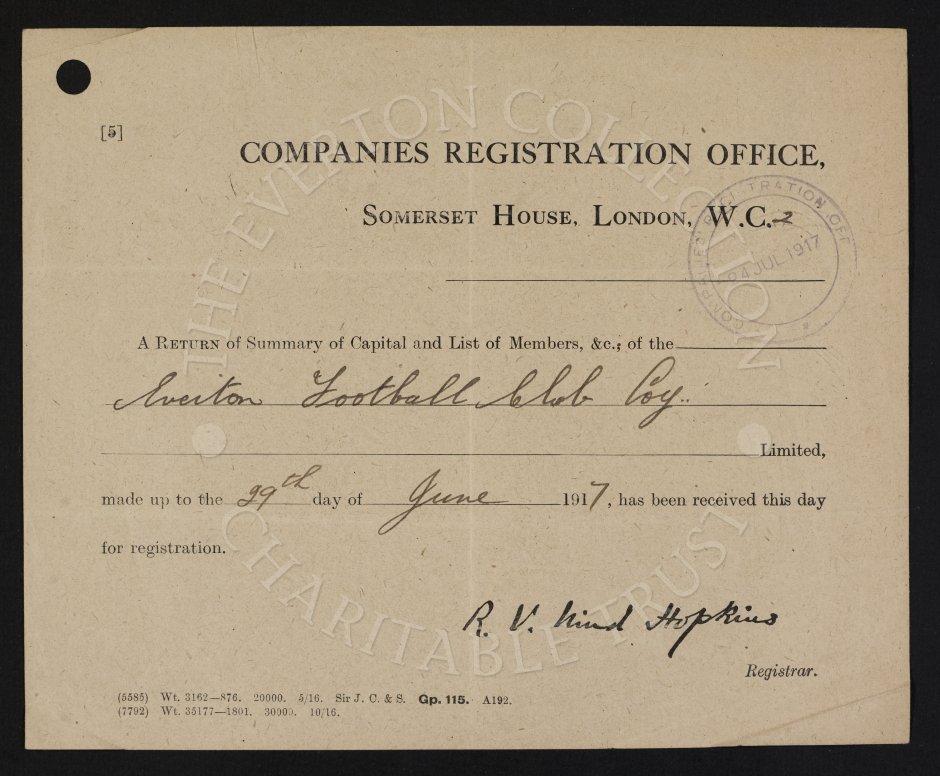 [5]
COMPANIES REGISTRATION OFFICE,
SOMERSET HOUSE, LONDON, W.C.2
COMPANIES REGISTRATION OFF
24 JUL 1917
A RETURN of Summary of Capital and List of Members, &c., of the
Everton Football Club Coy.
Limited,
made up to the 29th day of June 1917, has been received this day
for registration.
R. V. Nind Hopkins
Registrar.
(5585) Wt. 3162—876. 20000. 5/16. Sir J. C. & S. Gp. 115. A192.
(7792) Wt. 35177—1801. 30000. 10/16.
THE EVERTON COLLECTION
CHARITABLE TRUST